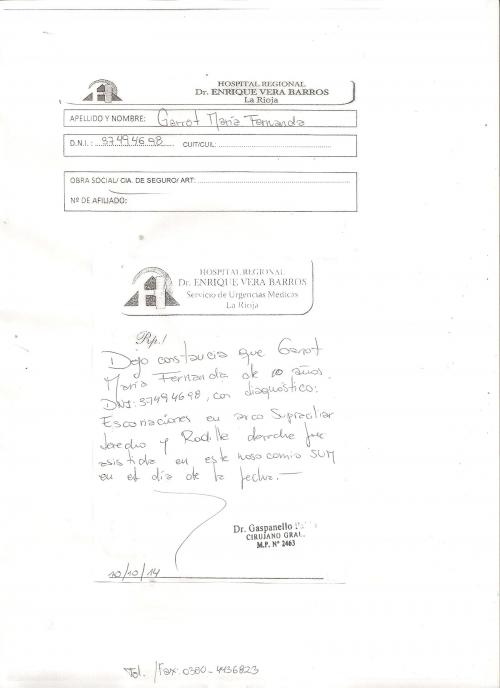 HOSPITAL REGIONAL
Dr. ENRIQUE VERA BARROS
La Rioja
APELLIDO Y NOMBRE: Garrot María Fernanda
D.N.I.: 37494698 CUIT/CUIL:
OBRA SOCIAL/ CIA. DE SEGURO/ ART:
Nº DE AFILIADO:
HOSPITAL REGIONAL
Dr. ENRIQUE VERA BARROS
Servicio de Urgencias Medicas
La Rioja
Rp.!
Dejo constancia que Garrot
María Fernanda de años.
DNI: 37494698, con diagnóstico:
Escoriaciones en arco Supraciliar
derecho y Rodilla derecha fue
asistida en este nosocomio SUM
en el día de la fecha.—
Dr. Gaspanello
CIRUJANO GRAL.
M.P. Nº 2463
10/10/14
Tel. /Fax: 0380-4436823